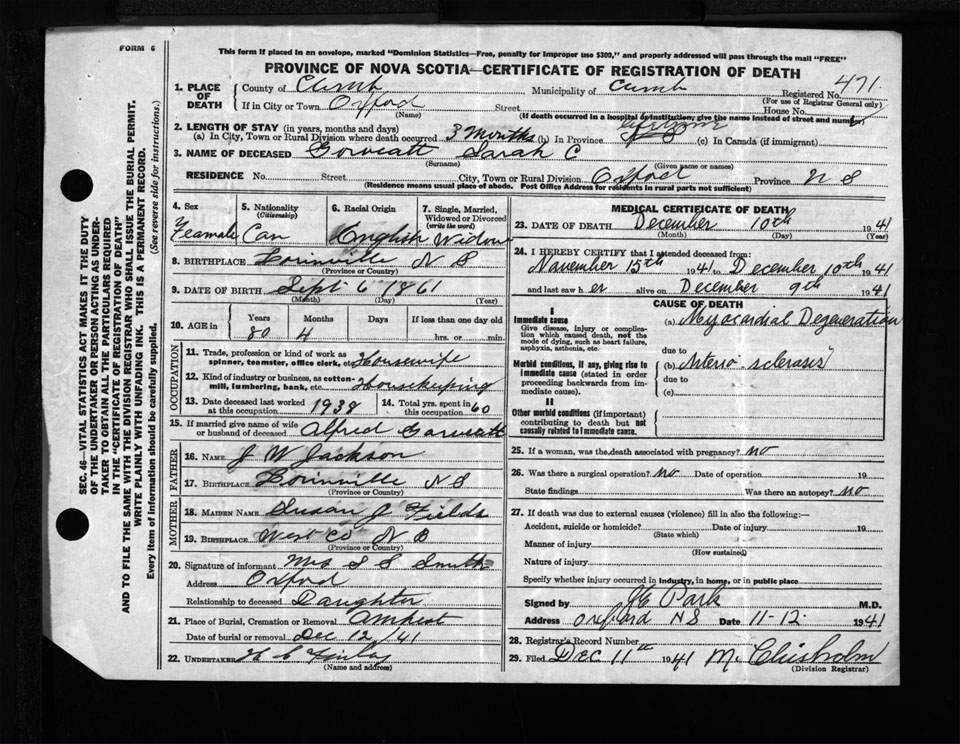 FORM 6
This form if placed in an envelope, marked "Dominion Statistics—Free, penalty for improper use $300," and properly addressed will pass through the mail "FREE"
PROVINCE OF NOVA SCOTIA—CERTIFICATE OF REGISTRATION OF DEATH
SEC. 46—VITAL STATISTICS ACT MAKES IT THE DUTY
OF THE UNDERTAKER OR PERSON ACTING AS UNDER-
TAKER TO OBTAIN ALL THE PARTICULARS REQUIRED
IN THE "CERTIFICATE OF REGISTRATION OF DEATH"
AND TO FILE THE SAME WITH THE DIVISION REGISTRAR WHO SHALL ISSUE THE BURIAL PERMIT.
WRITE PLAINLY WITH UNFADING INK. THIS IS A PERMANENT RECORD.
Every item of information should be carefully supplied. (See reverse side for instructions.)
1. PLACE OF DEATH County of Cumb Municipality of Cumb Registered No. 471
(For use of Registrar General only)
If in City or Town Oxford Street House No.
(Name) (If death occurred in a hospital or institution, give the name instead of street and number)
2. LENGTH OF STAY (in years, months and days)
(a) In City, Town or Rural Division where death occurred 3 Months (b) In Province (c) In Canada (if immigrant)
3. NAME OF DECEASED Sarah C
(Surname) (Given name or names)
RESIDENCE No. Street City, Town or Rural Division Oxford Province N S
(Residence means usual place of abode. Post Office Address for residents in rural parts not sufficient)
4. Sex 5. Nationality (Citizenship) 6. Racial Origin 7. Single, Married, Widowed or Divorced (write the word)
Feamale Can English Widow
8. BIRTHPLACE N S
(Province or Country)
9. DATE OF BIRTH Sept 6 1861
(Month) (Day) (Year)
10. AGE in Years Months Days If less than one day old
80 4 hrs. or min.
OCCUPATION
11. Trade, profession or kind of work as spinner, teamster, office clerk, etc. Housewife
12. Kind of industry or business, as cotton-mill, lumbering, bank, etc. Housekeeping
13. Date deceased last worked at this occupation 1938 14. Total yrs. spent in this occupation 60
15. If married give name of wife or husband of deceased Alfred
FATHER
16. NAME J W Jackson
17. BIRTHPLACE N S
(Province or Country)
MOTHER
18. MAIDEN NAME Susan J Fields
19. BIRTHPLACE West Co N B
(Province or Country)
20. Signature of informant Mrs S S Smith
Address Oxford
Relationship to deceased Daughter
21. Place of Burial, Cremation or Removal Amherst
Date of burial or removal Dec 12/41
22. UNDERTAKER
(Name and address)
MEDICAL CERTIFICATE OF DEATH
23. DATE OF DEATH December 10th 1941
(Month) (Day) (Year)
24. I HEREBY CERTIFY that I attended deceased from:
November 15th 1941 to December 10th 1941
and last saw her alive on December 9th 1941
CAUSE OF DEATH
I
Immediate cause (a) Myocardial Degeneration
Give disease, injury or complication which caused death, not the mode of dying, such as heart failure, asphyxia, asthenia, etc.
due to
Morbid conditions, if any, giving rise to immediate cause (stated in order proceeding backwards from immediate cause). (b) Arterio scleroses
due to
(c)
II
Other morbid conditions (if important) contributing to death but not causally related to immediate cause.
25. If a woman, was the death associated with pregnancy? no
26. Was there a surgical operation? no Date of operation 19
State findings Was there an autopsy? no
27. If death was due to external causes (violence) fill in also the following:—
Accident, suicide or homicide? Date of injury 19
(State which)
Manner of injury
(How sustained)
Nature of injury
Specify whether injury occurred in industry, in home, or in public place
Signed by Park M.D.
Address Oxford NS Date 11-12 1941
28. Registrar's Record Number
29. Filed Dec 11th 1941 M. Chisholm
(Division Registrar)